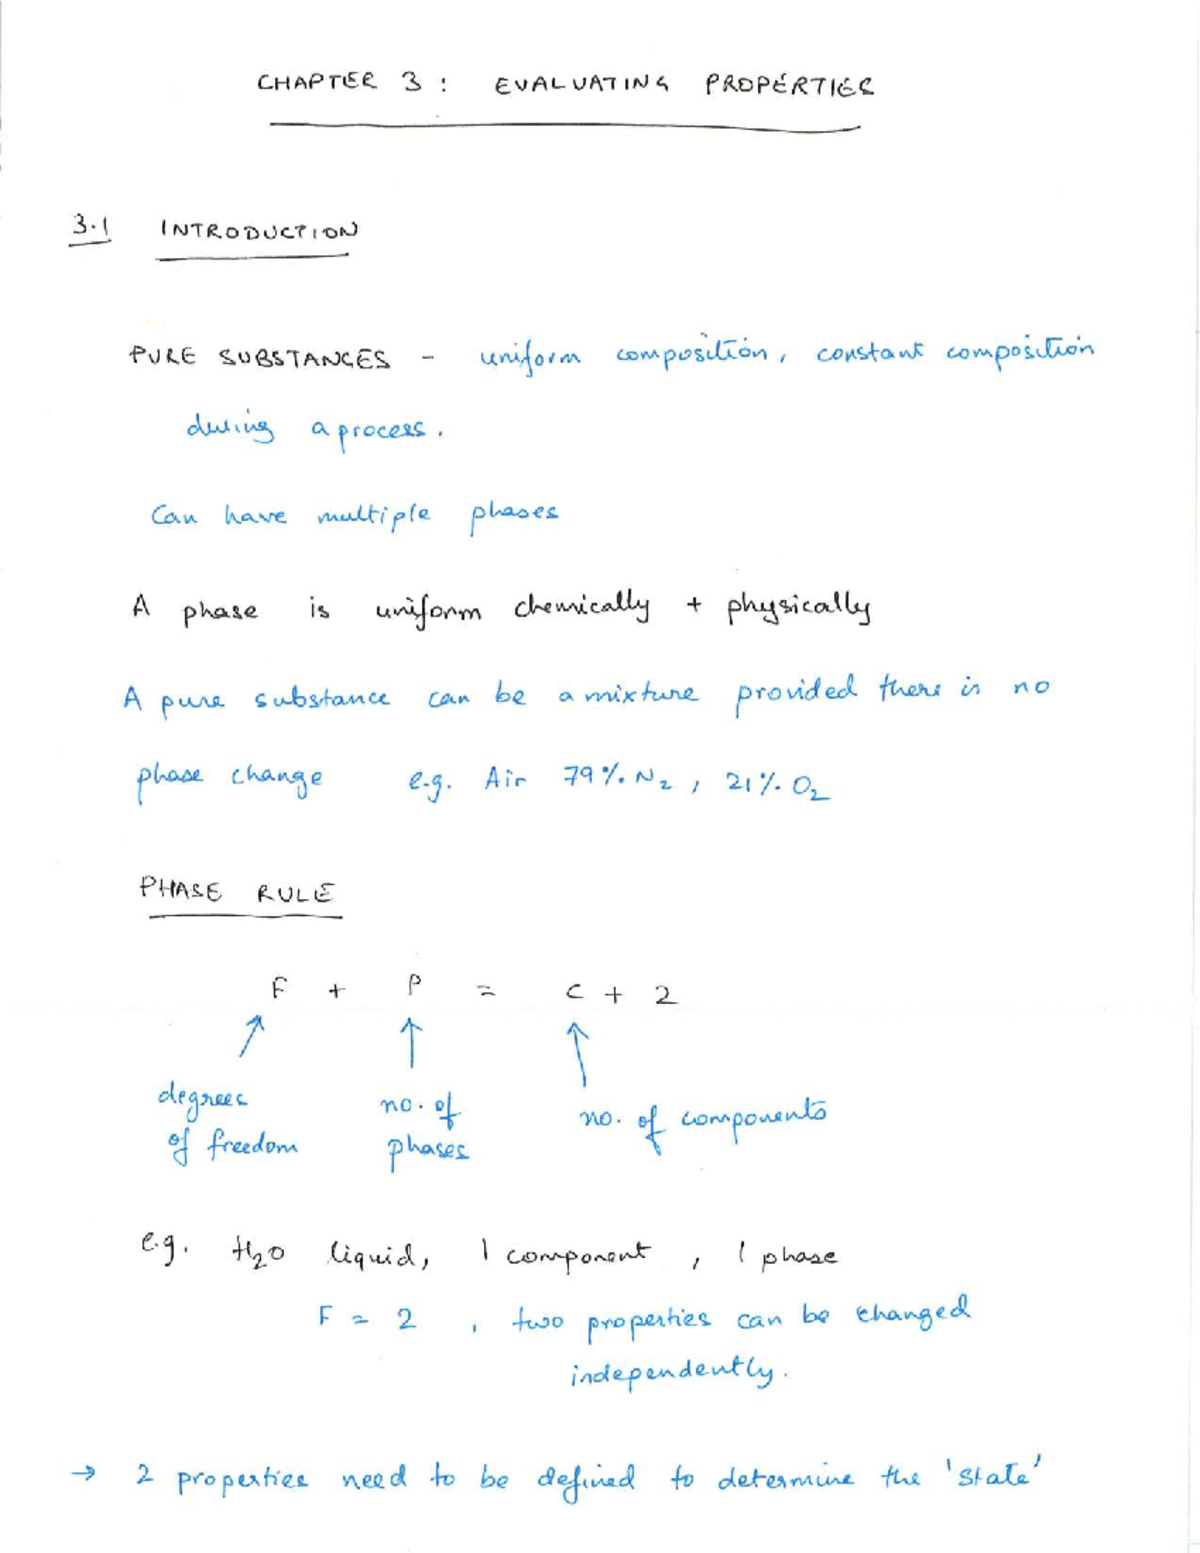 CHAPTER 3 : EVALUATING PROPERTIES
3.1 INTRODUCTION
PURE SUBSTANCES - uniform composition, constant composition
during a process.
Can have multiple phases
A phase is uniform chemically + physically
A pure substance can be a mixture provided there is no
phase change e.g. Air 79% N₂, 21% O₂
PHASE RULE
F + P = C + 2
degrees of freedom
no. of phases
no. of components
e.g. H₂O liquid, 1 component, 1 phase
F = 2, two properties can be changed
independently.
→ 2 properties need to be defined to determine the 'state'